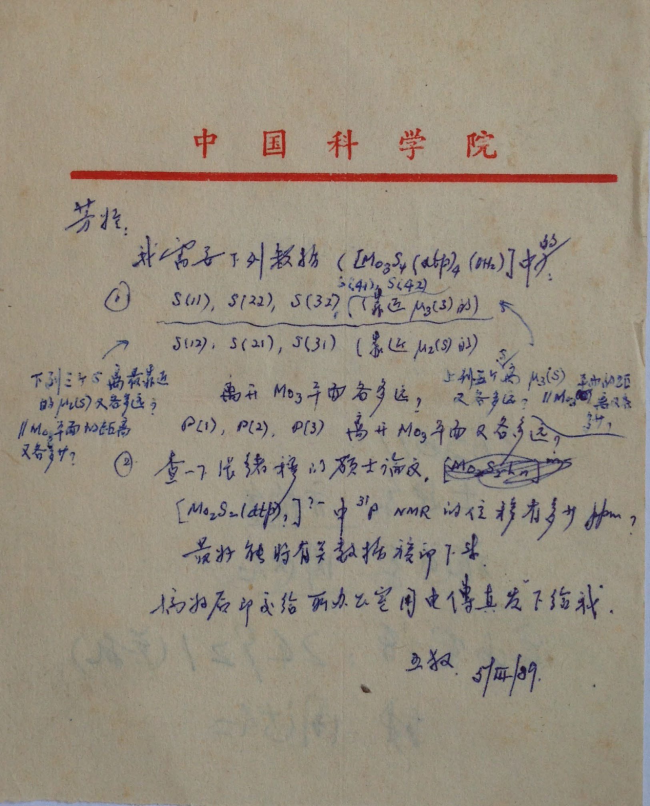 中国科学院
芳烃:
我需要下列数据 ([Mo3S4(dtp)4(OH2)]中的):
S(41), S(42)
① S(11), S(22), S(32), (靠近 μ3(S) 的)
S(12), S(21), S(31) (靠近 μ2(S) 的)
离开 Mo3 平面各多远?
P(1), P(2), P(3) 离开 Mo3 平面又各多远?
下列三个 S 离最靠近
的 μ2(S) 又各多远?
// Mo3 平面的距离
又各多少?
上列五个 S 离 μ3(S)
又各多远? // Mo3 平面的距
离又各
多少?
② 查一下张绪穆的硕士论文,
[Mo2S2(dtp)?]?- 中 31P NMR 的位移有多少 ppm,
最好能将有关数据複印下来.
搞好后即交给所办公室用电傳真发下给我.
5/III/89.